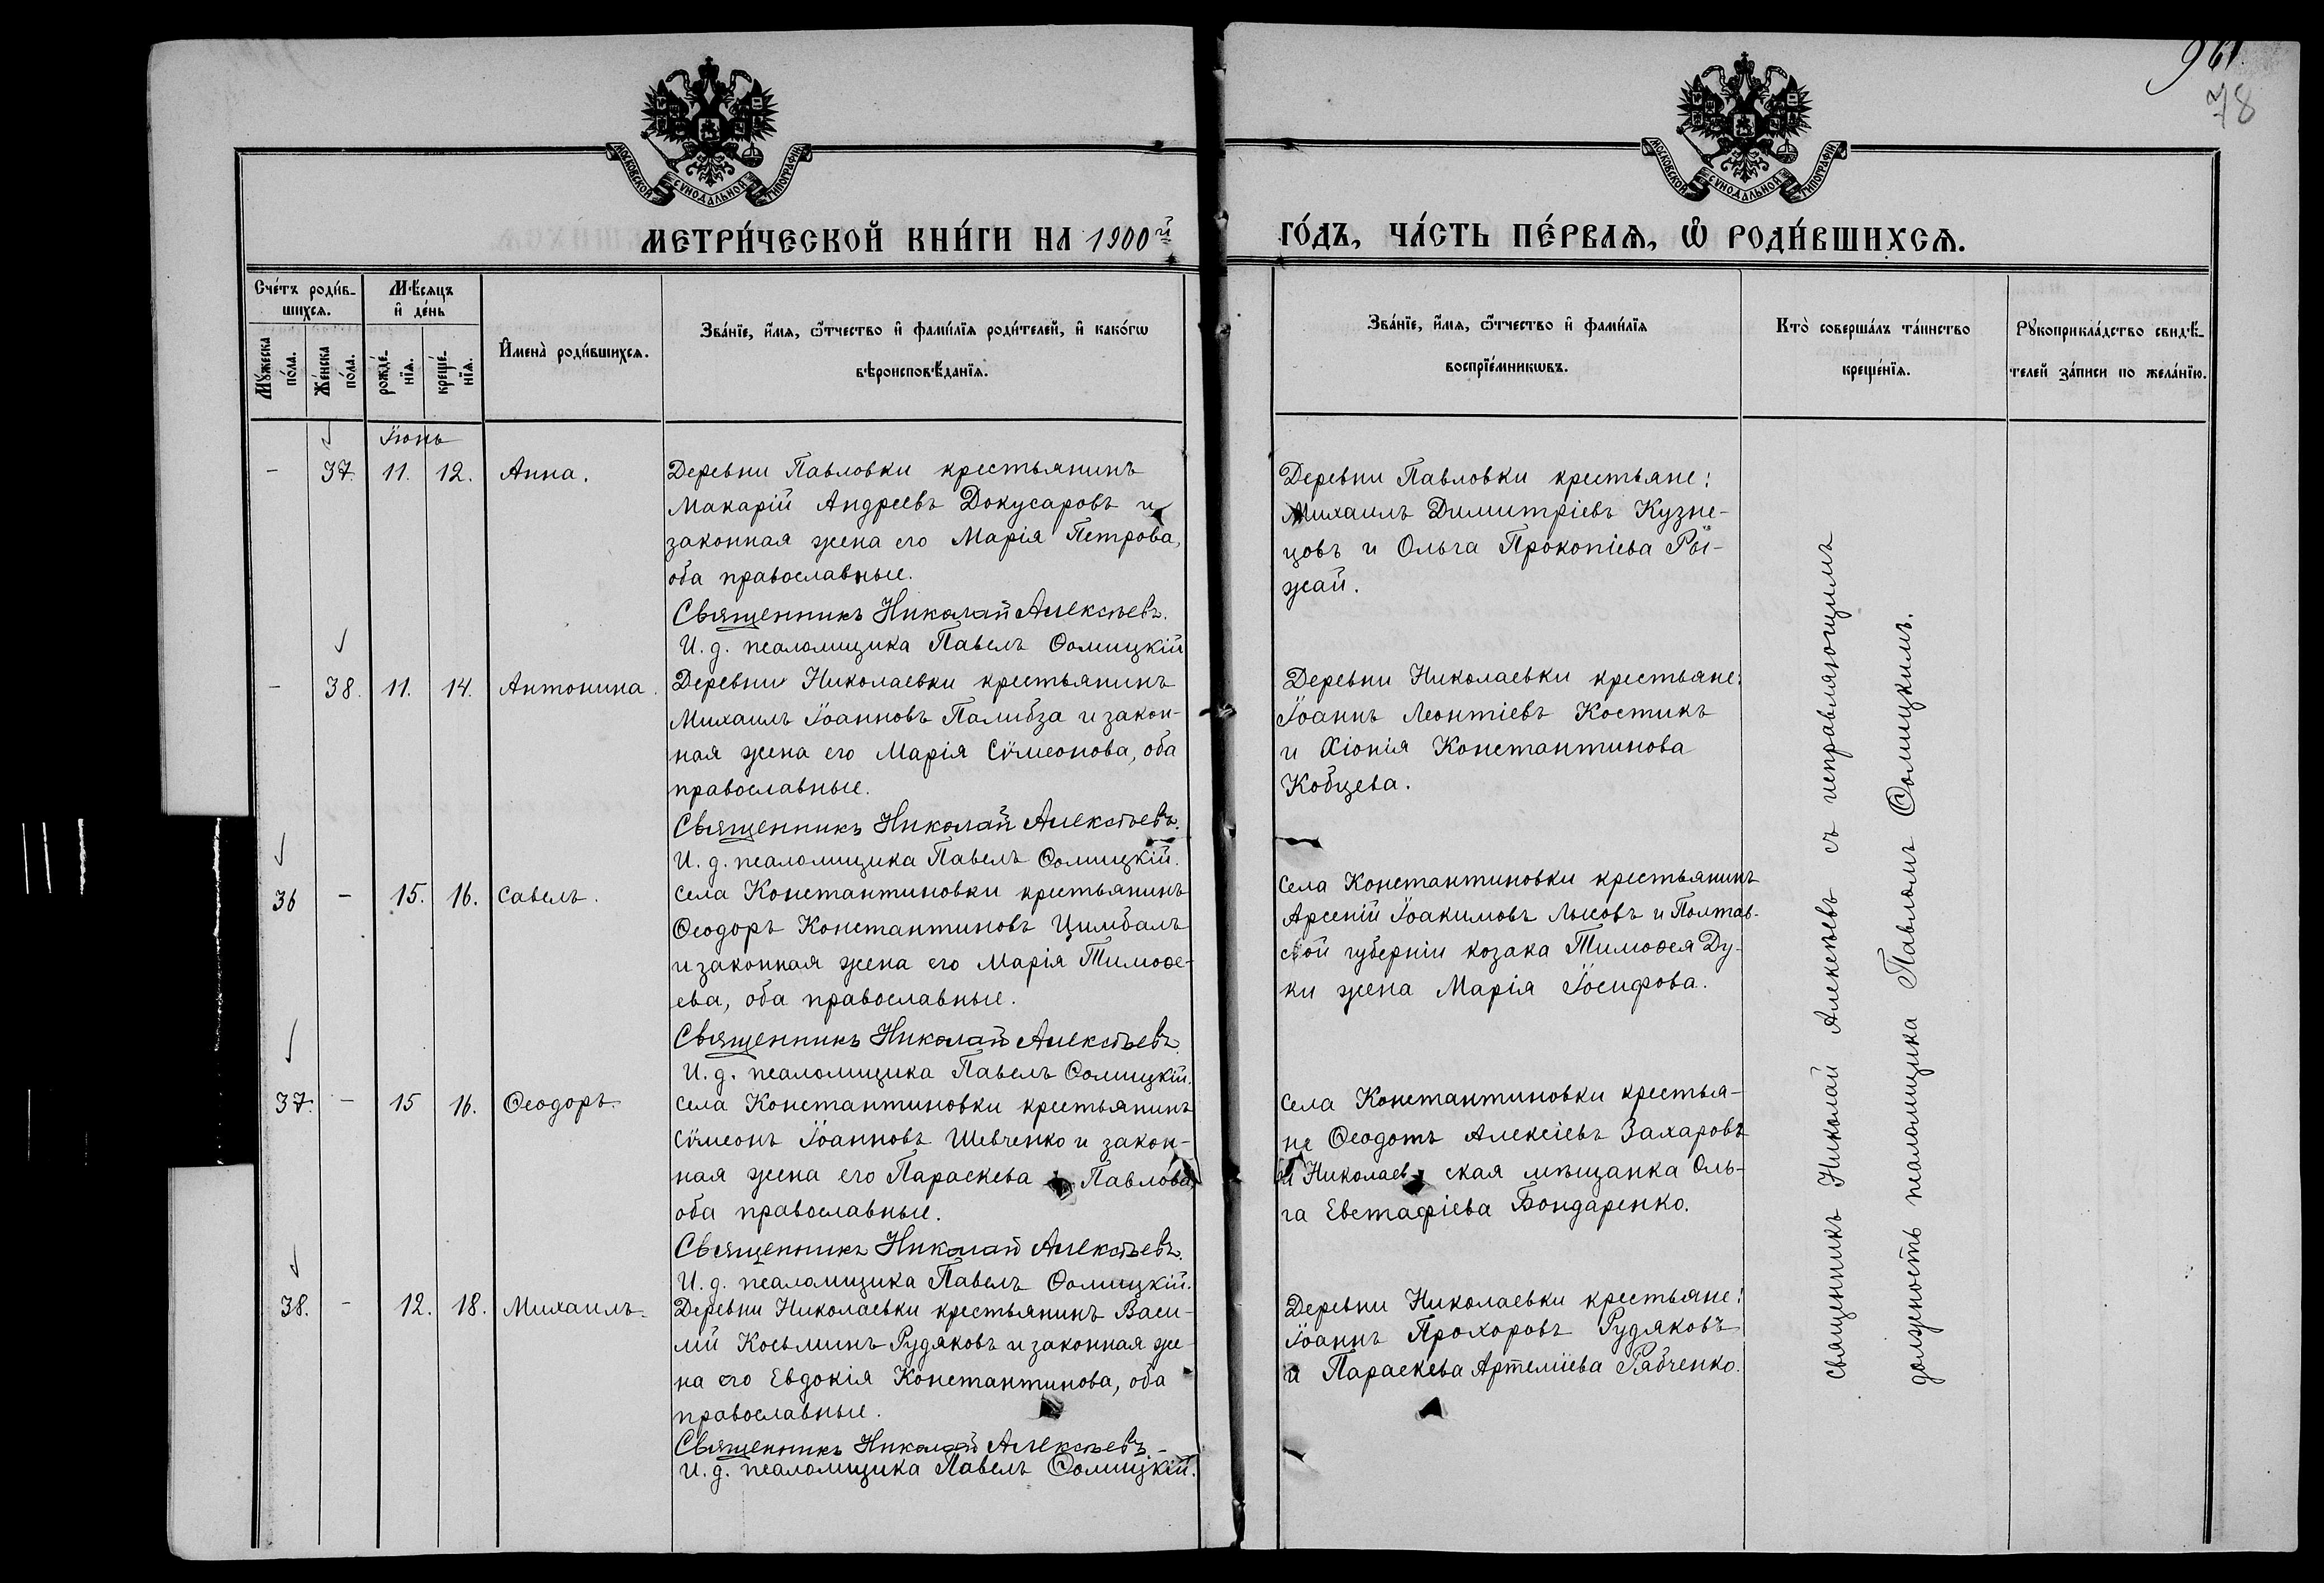 961.
78
МОСКОВСКОЙ СѴНОДАЛЬНОЙ ТИПОГРАФІИ
МОСКОВСКОЙ СѴНОДАЛЬНОЙ ТИПОГРАФІИ
МЕТРИ́ЧЕСКОЙ КНИ́ГИ НА 1900й
ГО́ДЪ, ЧА́СТЬ ПЕ́РВАѦ, Ѡ҆ РОДИ́ВШИХСѦ.
Сче́тъ роди́в-
шихсѧ.
Мꙋ́жеска по́ла.
Же́нска по́ла.
Мѣ́сѧцъ
и҆ де́нь
рожде́-
нїѧ.
креще́-
нїѧ.
И҆мена̀ роди́вшихсѧ.
Зва́нїе, и҆́мѧ, ѻ҆́тчество и҆ фами́лїѧ роди́телей, и҆ како́гѡ
вѣроисповѣ́данїѧ.
Зва́нїе, и҆́мѧ, ѻ҆́тчество и҆ фами́лїѧ
воспрїе́мникѡвъ.
Кто̀ соверша́лъ та́инство
креще́нїѧ.
Рꙋкоприкла́дство свидѣ́-
телей за́писи по жела́нїю.
Іюнь
- 37. 11. 12. Анна.
Деревни Павловки крестьянинъ
Макарій Андреевъ Докусаровъ и
законная жена его Марія Петрова,
оба православные.
Священникъ Николай Алексѣевъ.
И. д. псаломщика Павелъ Ѳомицкій
Деревни Павловки крестьяне:
Михаилъ Димитріевъ Кузне-
цовъ и Ольга Прокопіева Ры-
жай.
- 38. 11. 14. Антонина.
Деревни Николаевки крестьянинъ
Михаилъ Іоанновъ Палибза и закон-
ная жена его Марія Сѵмеонова, оба
православные.
Священникъ Николай Алексѣевъ.
И. д. псаломщика Павелъ Ѳомицкій.
Деревни Николаевки крестьяне:
Іоаннъ Леонтіевъ Костикъ
и Хіонія Константинова
Кобцева.
36 - 15. 16. Савелъ.
Села Константиновки крестьянинъ
Ѳеодоръ Константиновъ Цимбалъ
и законная жена его Марія Тимоѳе-
ева, оба православные.
Священникъ Николай Алексѣевъ.
И. д. псаломщика Павелъ Ѳомицкій.
Села Константиновки крестьянинъ
Арсеній Іоакимовъ Лысовъ и Полтав-
ской губерніи козака Тимоѳея Ду-
ки жена Марія Іосифова.
37. - 15 16. Ѳеодоръ.
Села Константиновки крестьянинъ
Сѵмеонъ Іоанновъ Шевченко и закон-
ная жена его Параскева Павлова,
оба православные.
Священникъ Николай Алексѣевъ.
И. д. псаломщика Павелъ Ѳомицкій.
Села Константиновки крестья-
не Ѳеодотъ Алексіевъ Захаровъ
и Николаевская мѣщанка Оль-
га Евстафіева Бондаренко.
38. - 12. 18. Михаилъ.
Деревни Николаевки крестьянинъ Васи-
лій Косьминъ Рудяковъ и законная же-
на его Евдокія Константинова, оба
православные.
Священникъ Николай Алексѣевъ.-
И. д. псаломщика Павелъ Ѳомицкій.
Деревни Николаевки крестьяне:
Іоаннъ Прохоровъ Рудяковъ
и Параскева Артеміева Рябченко.
Священникъ Николай Алексѣевъ съ исправляющимъ
должность псаломщика Павломъ Ѳомицкимъ.